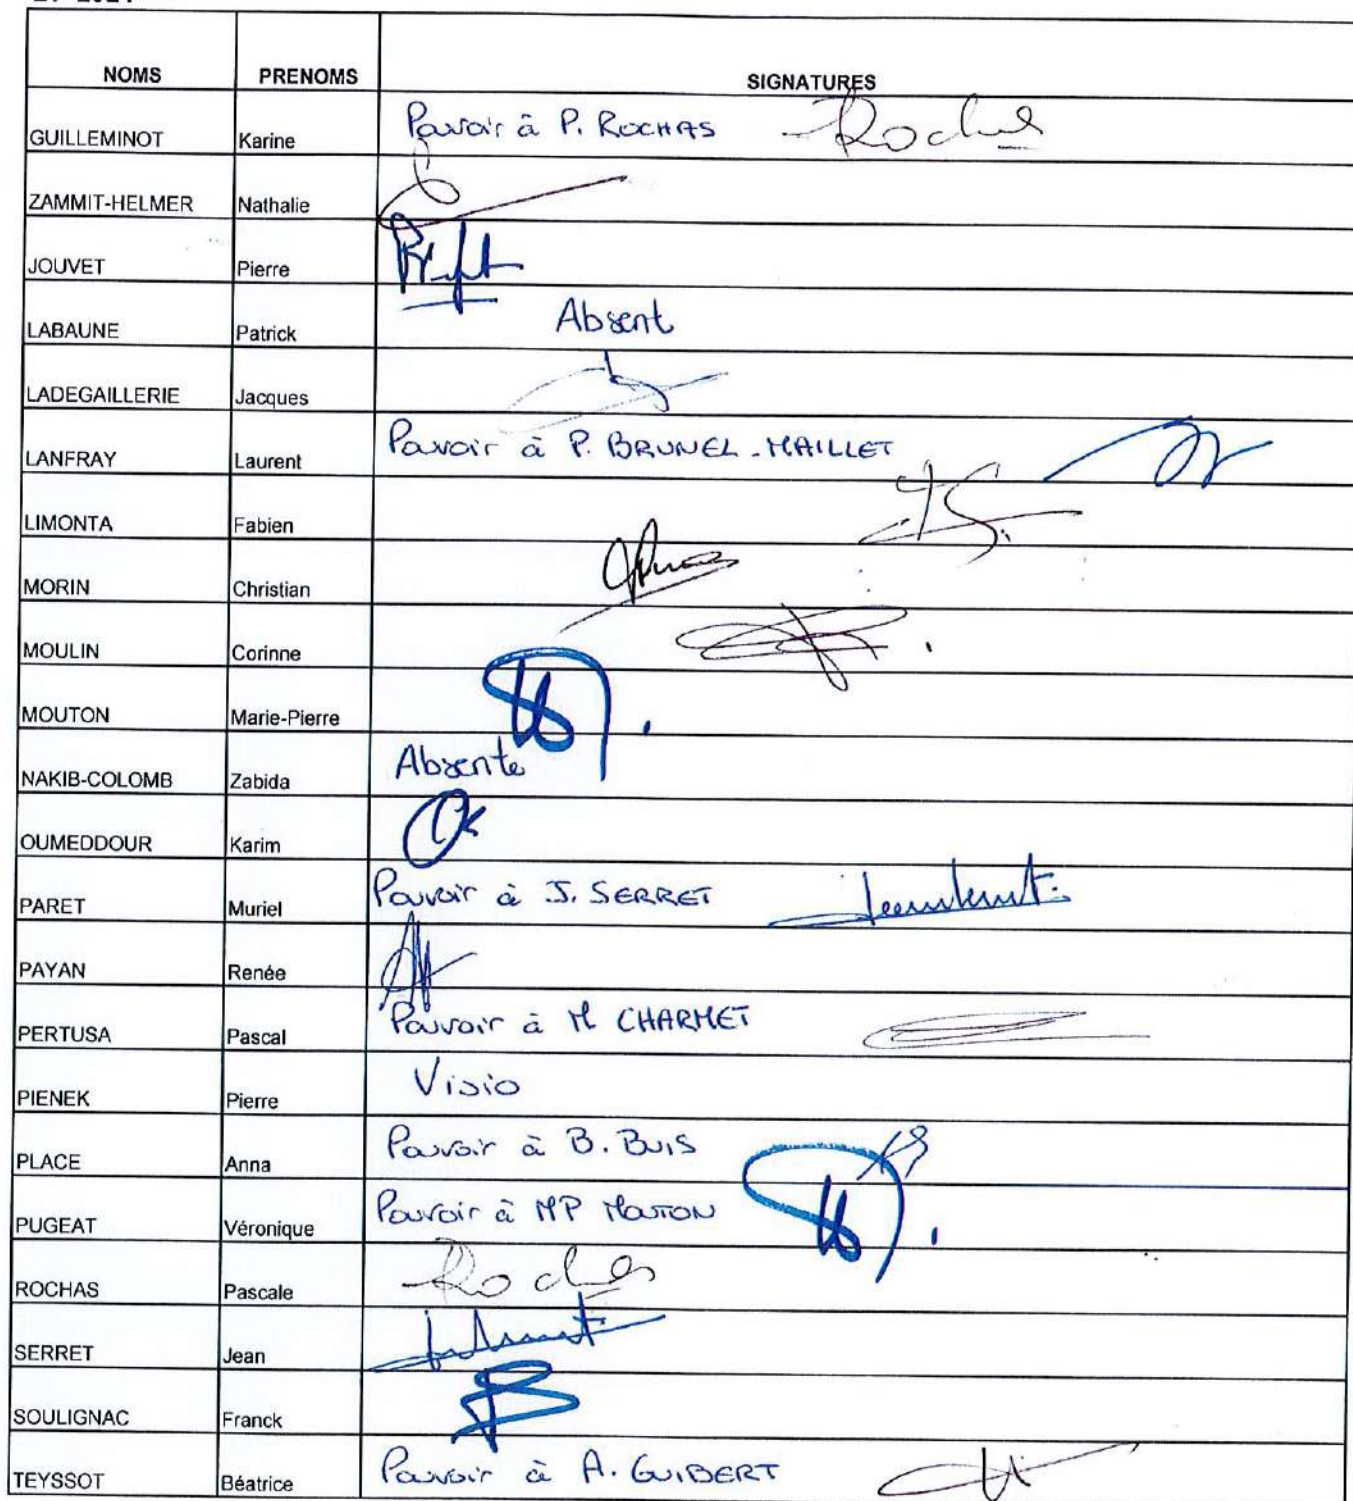 NOMS PRENOMS SIGNATURES
GUILLEMINOT Karine Pouvoir à P. ROCHAS Rochas
ZAMMIT-HELMER Nathalie
JOUVET Pierre
LABAUNE Patrick Absent
LADEGAILLERIE Jacques
LANFRAY Laurent Pouvoir à P. BRUNEL-MAILLET
LIMONTA Fabien
MORIN Christian
MOULIN Corinne
MOUTON Marie-Pierre
NAKIB-COLOMB Zabida Absente
OUMEDDOUR Karim
PARET Muriel Pouvoir à J. SERRET
PAYAN Renée
PERTUSA Pascal Pouvoir à M CHARMET
PIENEK Pierre Visio
PLACE Anna Pouvoir à B. BUIS
PUGEAT Véronique Pouvoir à MP MOUTON
ROCHAS Pascale Rochas
SERRET Jean
SOULIGNAC Franck
TEYSSOT Béatrice Pouvoir à A. GUIBERT